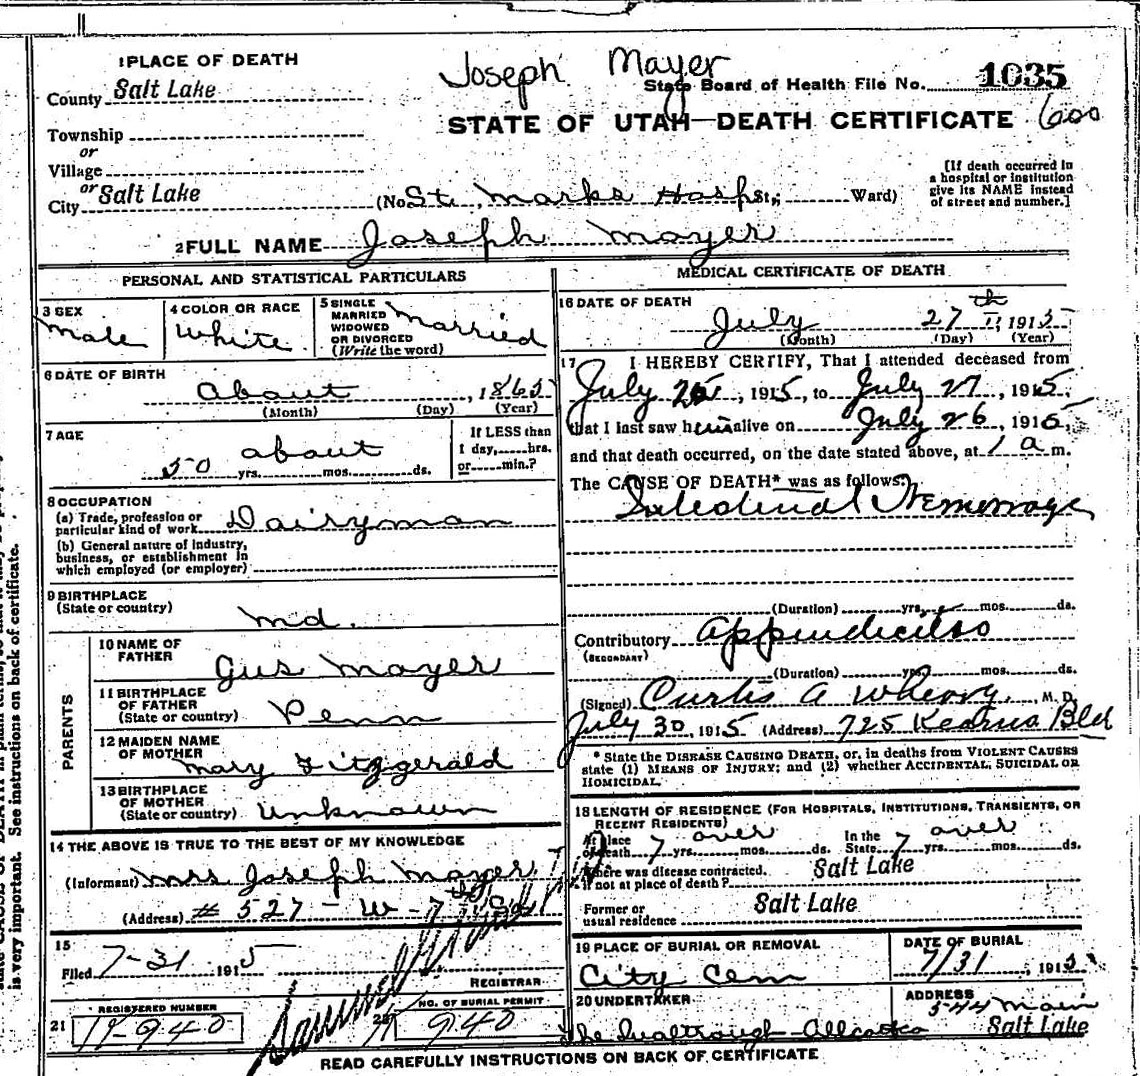 1 PLACE OF DEATH
Joseph Mayer
County Salt Lake
State Board of Health File No. 1035
Township
STATE OF UTAH—DEATH CERTIFICATE 600
or
Village
or
City Salt Lake
(No. St. Marks Hosp St.; Ward)
[If death occurred in
a hospital or institution
give its NAME instead
of street and number.]
2 FULL NAME Joseph Mayer
PERSONAL AND STATISTICAL PARTICULARS
3 SEX
Male
4 COLOR OR RACE
White
5 SINGLE
MARRIED
WIDOWED
OR DIVORCED
(Write the word)
Married
6 DATE OF BIRTH
About , 1865
(Month) (Day) (Year)
7 AGE
about
50 yrs. mos. ds.
If LESS than
1 day, hrs.
or min.?
8 OCCUPATION
(a) Trade, profession or
particular kind of work Dairyman
(b) General nature of industry,
business, or establishment in
which employed (or employer)
9 BIRTHPLACE
(State or country)
Md.
PARENTS
10 NAME OF
FATHER
Gus Mayer
11 BIRTHPLACE
OF FATHER
(State or country) Penn
12 MAIDEN NAME
OF MOTHER
Mary Fitzgerald
13 BIRTHPLACE
OF MOTHER
(State or country) Unknown
14 THE ABOVE IS TRUE TO THE BEST OF MY KNOWLEDGE
(Informant) Mrs Joseph Mayer
(Address) # 527 - W - 7th So
15
Filed 7-31 1915
REGISTRAR
21 REGISTERED NUMBER
H-940
22 NO. OF BURIAL PERMIT
940
MEDICAL CERTIFICATE OF DEATH
16 DATE OF DEATH
July 27th, 1915
(Month) (Day) (Year)
17 I HEREBY CERTIFY, That I attended deceased from
July 25, 1915, to July 27, 1915,
that I last saw him alive on July 26, 1915,
and that death occurred, on the date stated above, at 1 a m.
The CAUSE OF DEATH* was as follows:
Intestinal Hemorrage
(Duration) yrs. mos. ds.
Contributory Appendicitis
(SECONDARY)
(Duration) yrs. mos. ds.
(Signed) Curtis A Wherry, M. D.
July 30, 1915 (Address) 725 Kearns Bld
* State the DISEASE CAUSING DEATH, or, in deaths from VIOLENT CAUSES
state (1) MEANS OF INJURY; and (2) whether ACCIDENTAL, SUICIDAL OR
HOMICIDAL.
18 LENGTH OF RESIDENCE (FOR HOSPITALS, INSTITUTIONS, TRANSIENTS, OR
RECENT RESIDENTS)
At place of death 7 over yrs. mos. ds. In the State 7 over yrs. mos. ds.
Where was disease contracted,
if not at place of death? Salt Lake
Former or
usual residence Salt Lake
19 PLACE OF BURIAL OR REMOVAL
City Cem
DATE OF BURIAL
7/31, 1915
20 UNDERTAKER
ADDRESS
544 Main
Salt Lake
READ CAREFULLY INSTRUCTIONS ON BACK OF CERTIFICATE
is very important. See instructions on back of certificate.